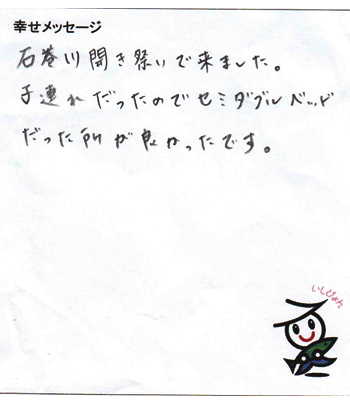 幸せメッセージ
石巻川開き祭りで来ました。
子連れだったのでセミダブルベッド
だった所が良かったです。
いしぴょん